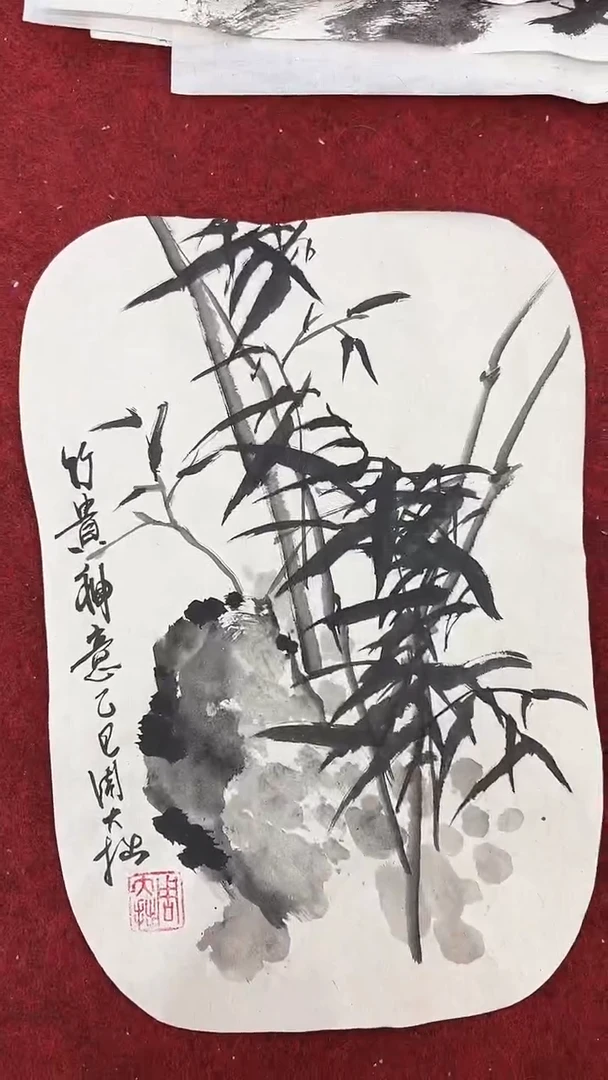 竹貴神意乙巳周大拙
周大拙